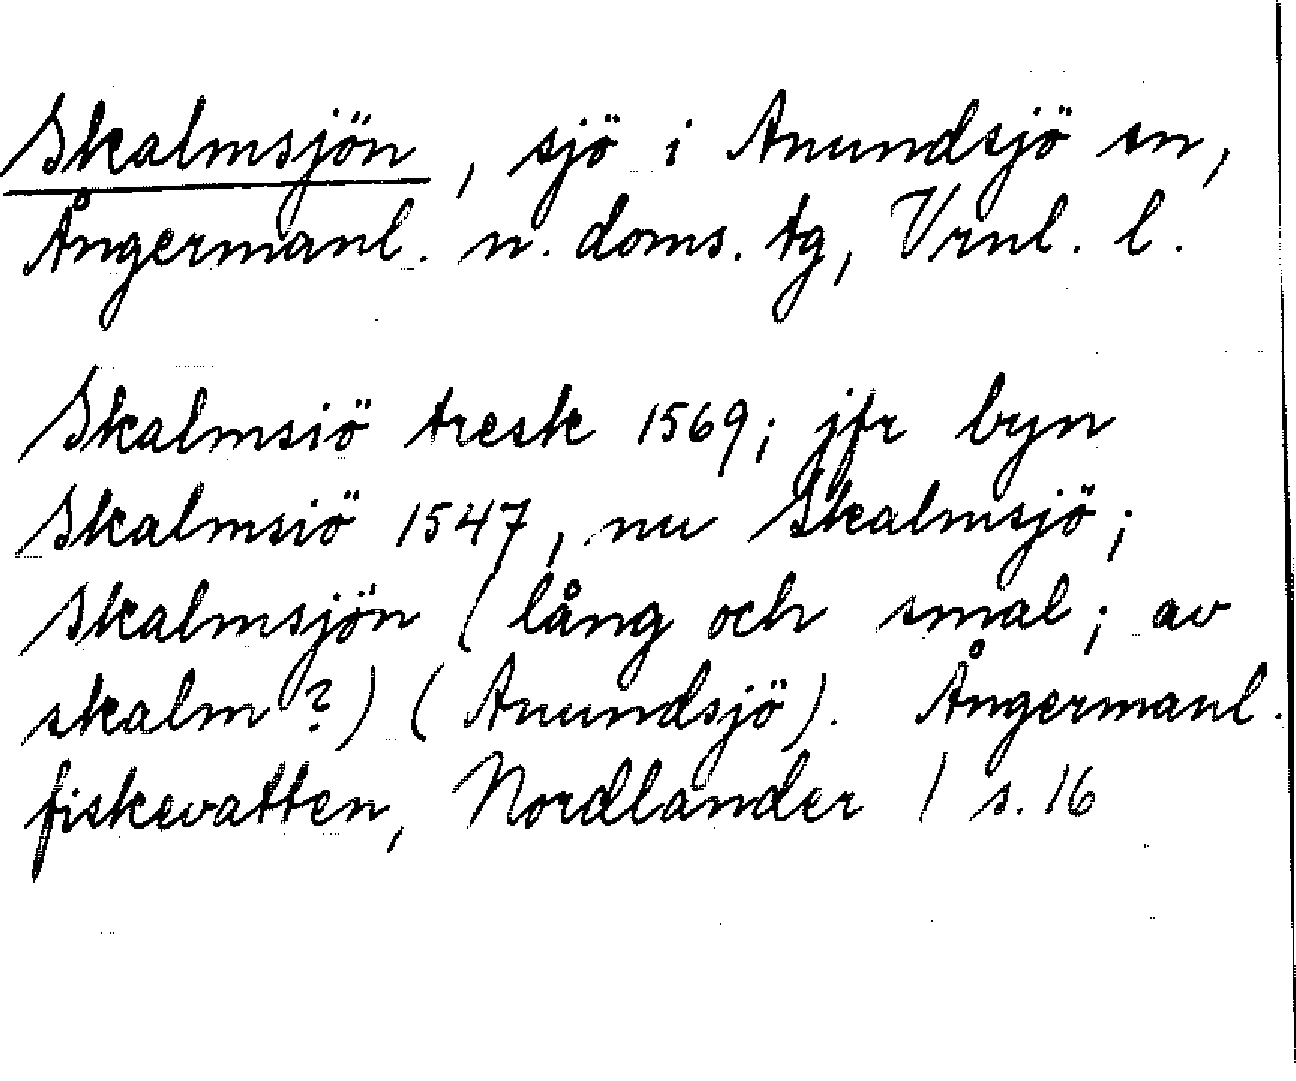 Skalmsjön, sjö i Anundsjö sn,
Ångermanl. n. doms. tg, Vrnl. l.
Skalmsiö tresk 1569; jfr byn
Skalmsiö 1547, nu Skalmsjö;
Skalmsjön (lång och smal; av
skalm?) (Anundsjö). Ångermanl.
fiskevatten, Nordlander I s. 16